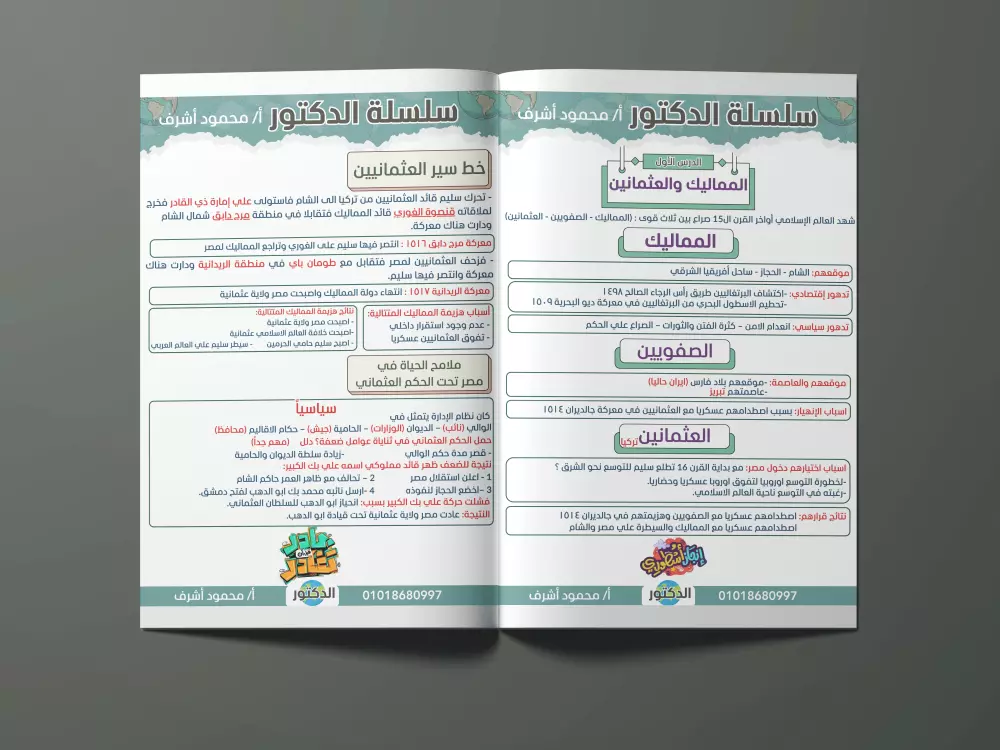 سلسلة الدكتور أ/ محمود أشرف
الدرس الأول
المماليك والعثمانين
شهد العالم الإسلامي أواخر القرن ال15 صراع بين ثلاث قوى : (المماليك - الصفويين - العثمانين)
المماليك
موقعهم: الشام - الحجاز - ساحل أفريقيا الشرقي
تدهور إقتصادي: -اكتشاف البرتغاليين طريق رأس الرجاء الصالح ١٤٩٨
-تحطيم الاسطول البحري من البرتغاليين في معركة ديو البحرية ١٥٠٩
تدهور سياسي: انعدام الامن - كثرة الفتن والثورات - الصراع علي الحكم
الصفويين
موقعهم والعاصمة: -موقعهم بلاد فارس (ايران حاليا)
-عاصمتهم تبريز
اسباب الإنهيار: بسبب اصطدامهم عسكريا مع العثمانيين في معركة جالديران ١٥١٤
العثمانين
تركيا
اسباب اختيارهم دخول مصر: مع بداية القرن 16 تطلع سليم للتوسع نحو الشرق ؟
-لخطورة التوسع اوروبيا لتفوق اوروبا عسكريا وحضاريا.
-رغبته في التوسع ناحية العالم الاسلامي.
نتائج قرارهم: اصطدامهم عسكريا مع الصفويين وهزيمتهم في جالديران ١٥١٤
اصطدامهم عسكريا مع المماليك والسيطرة علي مصر والشام
إنجاز أسطوري
01018680997 الدكتور أ/ محمود أشرف
سلسلة الدكتور أ/ محمود أشرف
خط سير العثمانيين
- تحرك سليم قائد العثمانيين من تركيا الى الشام فاستولى علي إمارة ذي القادر فخرج
لملاقاته قنصوة الغوري قائد المماليك فتقابلا في منطقة مرج دابق شمال الشام
ودارت هناك معركة.
معركة مرج دابق ١٥١٦ : انتصر فيها سليم على الغوري وتراجع المماليك لمصر
- فزحف العثمانيين لمصر فتقابل مع طومان باي في منطقة الريدانية ودارت هناك
معركة وانتصر فيها سليم.
معركة الريدانية ١٥١٧ : انتهاء دولة المماليك واصبحت مصر ولاية عثمانية
أسباب هزيمة المماليك المتتالية:
- عدم وجود استقرار داخلي
- تفوق العثمانيين عسكريا
نتائج هزيمة المماليك المتتالية:
- اصبحت مصر ولاية عثمانية
-اصبحت خلافة العالم الاسلامي عثمانية
- اصبح سليم حامي الحرمين - سيطر سليم علي العالم العربي
ملامح الحياة في
مصر تحت الحكم العثماني
سياسياً
كان نظام الإدارة يتمثل في
الوالي (نائب) – الديوان (الوزارات) - الحامية (جيش) – حكام الاقاليم (محافظ)
حمل الحكم العثماني في ثناياة عوامل ضعفة؟ دلل (مهم جداً)
- قصر مدة حكم الوالي -زيادة سلطة الديوان والحامية
نتيجة للضعف ظهر قائد مملوكي اسمه علي بك الكبير:
1 - اعلن استقلال مصر 2 – تحالف مع ظاهر العمر حاكم الشام
3 –اخضع الحجاز لنفوذه 4 -ارسل نائبه محمد بك ابو الدهب لفتح دمشق.
فشلت حركة علي بك الكبير بسبب: انحياز ابو الدهب للسلطان العثماني.
النتيجة: عادت مصر ولاية عثمانية تحت قيادة ابو الدهب.
01018680997 الدكتور أ/ محمود أشرف